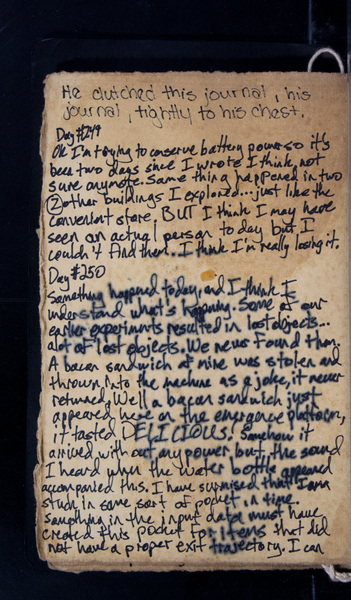 He clutched this journal, his
journal, tightly to his chest.
Day #249
Ok I'm trying to conserve battery power so it's
been two days since I wrote I think, not
sure anymore. Same thing happened in two
(2) other buildings I explored...just like the
convenient store. BUT I think I may have
seen an actual person to day but I
couldn't find them. I think I'm really losing it.
Day #250
Something happened today, and I think I
understand what's happening. Some of our
earlier experiments resulted in lost objects...
alot of lost objects. We never found them.
A bacon sandwich of mine was stolen and
thrown into the machine as a joke, it never
returned. Well a bacon sandwich just
appeared here on the emergence platform,
it tasted DELICIOUS. Somehow it
arrived with out any power but, the sound
I heard when the water bottle appeared
accompanied this. I have surmised that I am
stuck in some sort of pocket in time.
Something in the input data must have
created this pocket for items that did
not have a proper exit trajectory. I can